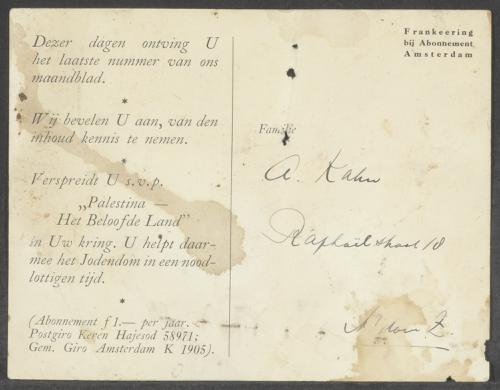 Dezer dagen ontving U
het laatste nummer van ons
maandblad.
*
Wij bevelen U aan, van den
inhoud kennis te nemen.
*
Verspreidt U s.v.p.
„Palestina —
Het Beloofde Land"
in Uw kring. U helpt daar-
mee het Jodendom in een nood-
lottigen tijd.
*
(Abonnement f 1.— per jaar.
Postgiro Keren Hajesod 58971;
Gem. Giro Amsterdam K 1905).
Frankeering
bij Abonnement
Amsterdam
Familie
A. Kahn
Raphaëlstraat 18
Z.